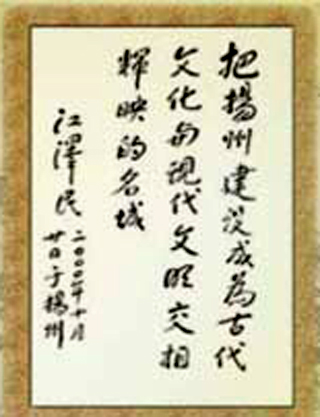 把揚州建设成為古代
文化与現代文明交相
輝映的名城
江澤民
二〇〇〇年十月
廿日于揚州